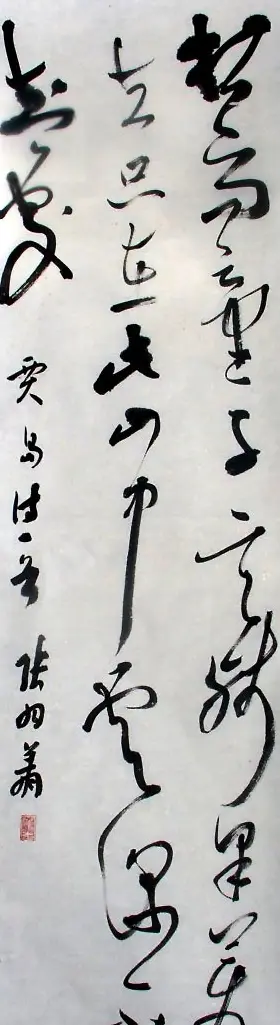 松下问童子言师采药
去只在此山中云深不
知處
贾岛诗一首